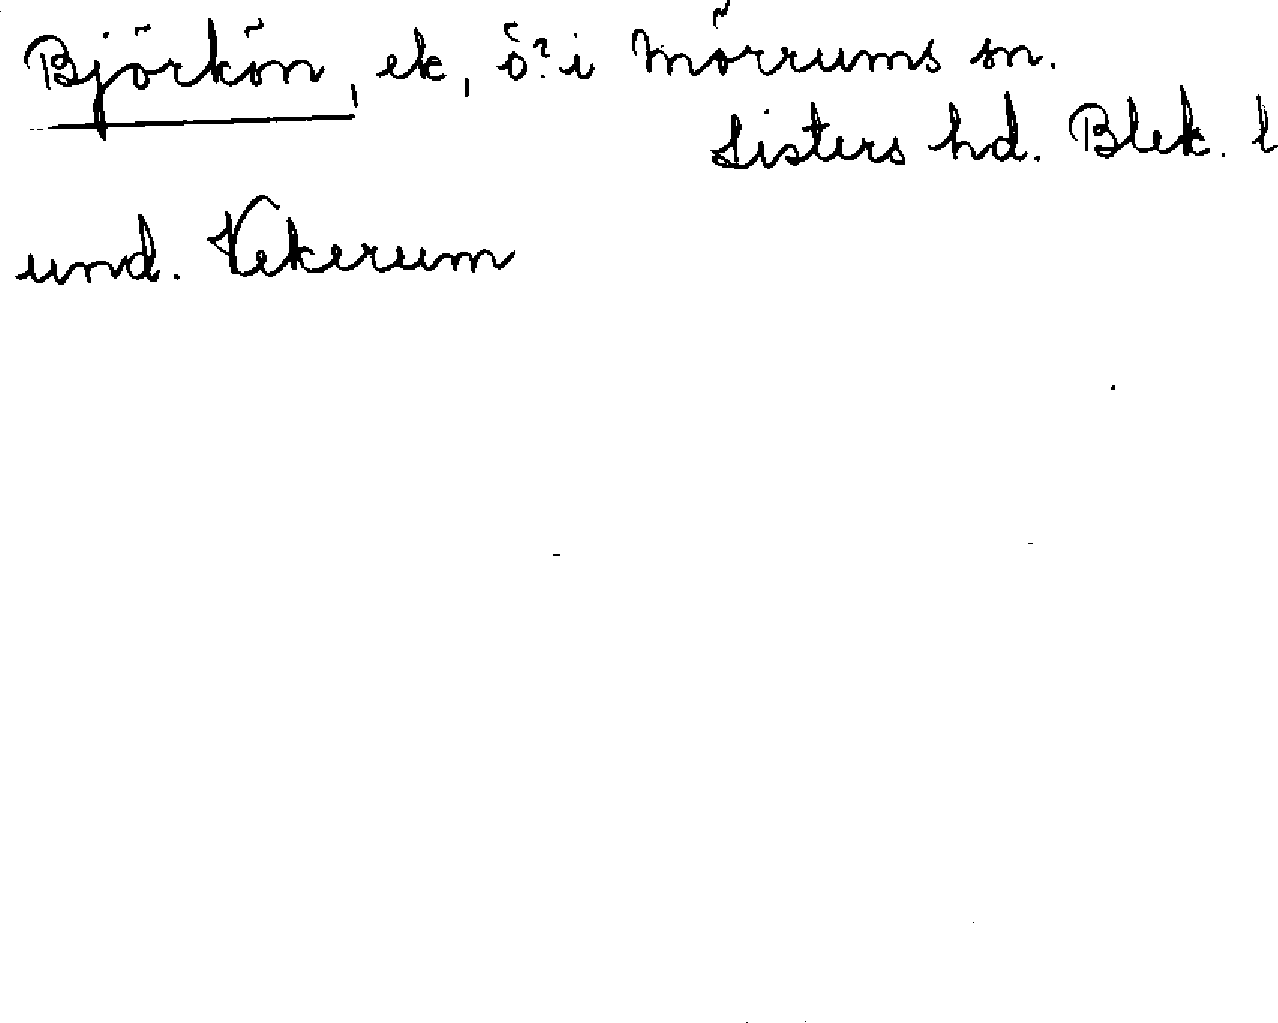 Björkön, ek, ö? i Mörrums sn.
Listers hd. Blek. l
und. Vekerum